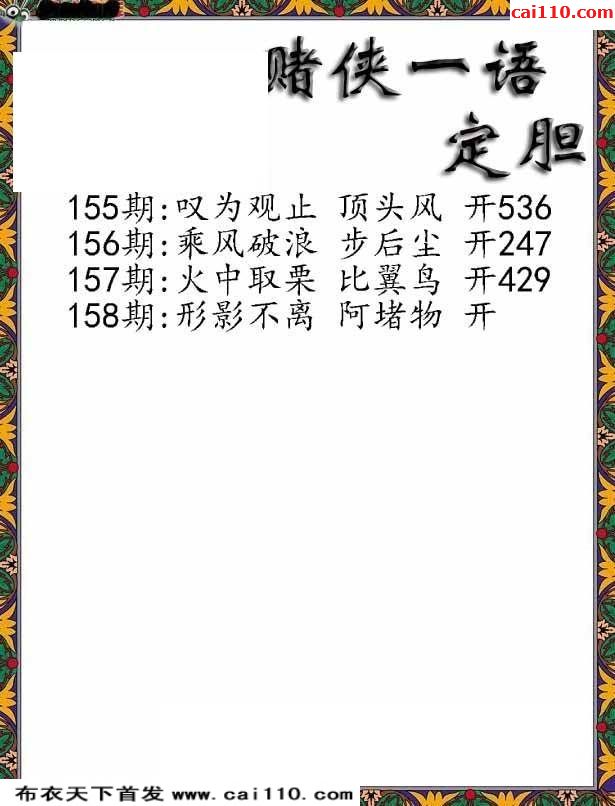 cai110.com
赌侠一语
定胆
155期:叹为观止 顶头风 开536
156期:乘风破浪 步后尘 开247
157期:火中取栗 比翼鸟 开429
158期:形影不离 阿堵物 开
布衣天下首发 www.cai110.com